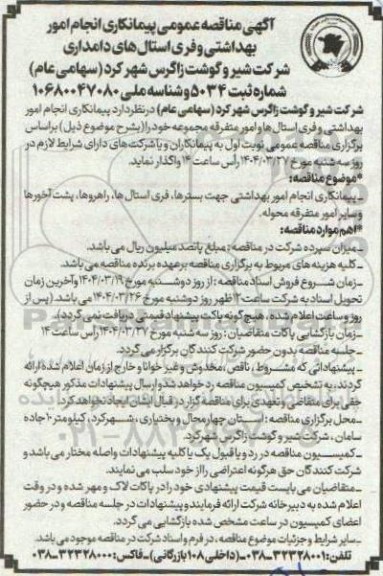 آگهی مناقصه عمومی پیمانکاری انجام امور
بهداشتی و فری استال های دامداری
شرکت شیر و گوشت زاگرس شهرکرد (سهامی عام)
شماره ثبت ۵۰۳۴ و شناسه ملی ۱۰۶۸۰۰۴۷۰۸۰
شرکت شیر و گوشت زاگرس شهرکرد (سهامی عام) در نظر دارد پیمانکاری انجام امور
بهداشتی و فری استال ها و امور متفرقه مجموعه خود را (بشرح موضوع ذیل) براساس
برگزاری مناقصه عمومی نوبت اول به پیمانکاران و یا شرکت های دارای شرایط لازم در
روز سه شنبه مورخ ۱۴۰۴/۰۳/۲۷ رأس ساعت ۱۴ واگذار نماید.
*موضوع مناقصه:
ـ پیمانکاری انجام امور بهداشتی جهت بسترها، فری استال ها، راهروها، پشت آخورها
و سایر امور متفرقه محوله.
*اهم موارد مناقصه:
ـ میزان سپرده شرکت در مناقصه: مبلغ پانصد میلیون ریال می باشد.
ـ کلیه هزینه های مربوط به برگزاری مناقصه بر عهده برنده مناقصه می باشد.
ـ زمان شروع فروش اسناد مناقصه: از روز دوشنبه مورخ ۱۴۰۴/۰۳/۱۹ و آخرین زمان
تحویل اسناد به شرکت ساعت ۱۲ ظهر روز دوشنبه مورخ ۱۴۰۴/۰۳/۲۶ می باشد. (پس از
روز و ساعت اعلام شده، هیچ گونه پاکت پیشنهاد قیمتی دریافت نمی گردد).
ـ زمان بازگشایی پاکات متقاضیان: روز سه شنبه مورخ ۱۴۰۴/۰۳/۲۷ رأس ساعت ۱۴
ـ جلسه مناقصه بدون حضور شرکت کنندگان برگزار می گردد.
ـ پیشنهاداتی که مشروط، ناقص، مخدوش و غیر خوانا و خارج از زمان اعلام شده ارائه
گردند، به تشخیص کمیسیون مناقصه رد خواهد شد و ارسال پیشنهادات مذکور هیچگونه
حقی برای متقاضی و تعهدی برای مناقصه گزار در قبال ایشان ایجاد نخواهد کرد.
ـ محل برگزاری مناقصه: استان چهارمحال و بختیاری، شهرکرد، کیلومتر ۱۰ جاده
سامان، شرکت شیر و گوشت زاگرس شهرکرد.
ـ کمیسیون مناقصه در رد و یا قبول یک یا کلیه پیشنهادات واصله مختار می باشد و
شرکت کنندگان حق هرگونه اعتراضی را از خود سلب می نمایند.
ـ متقاضیان می بایست قیمت پیشنهادی خود را در پاکات لاک و مهر شده و در وقت
اعلام شده به دبیرخانه شرکت ارائه فرمایند و پیشنهادات در جلسه مناقصه و در حضور
اعضای کمیسیون در ساعت مشخص شده بازگشایی می گردد.
ـ سایر شرایط و جزئیات موضوع مناقصه، در فرم و اسناد شرکت در مناقصه موجود می باشد.
تلفن: ۳۲۳۲۸۰۰۱-۰۳۸ (داخلی ۱۰۸ بازرگانی) ـ فاکس: ۳۲۳۲۸۰۰۰-۰۳۸